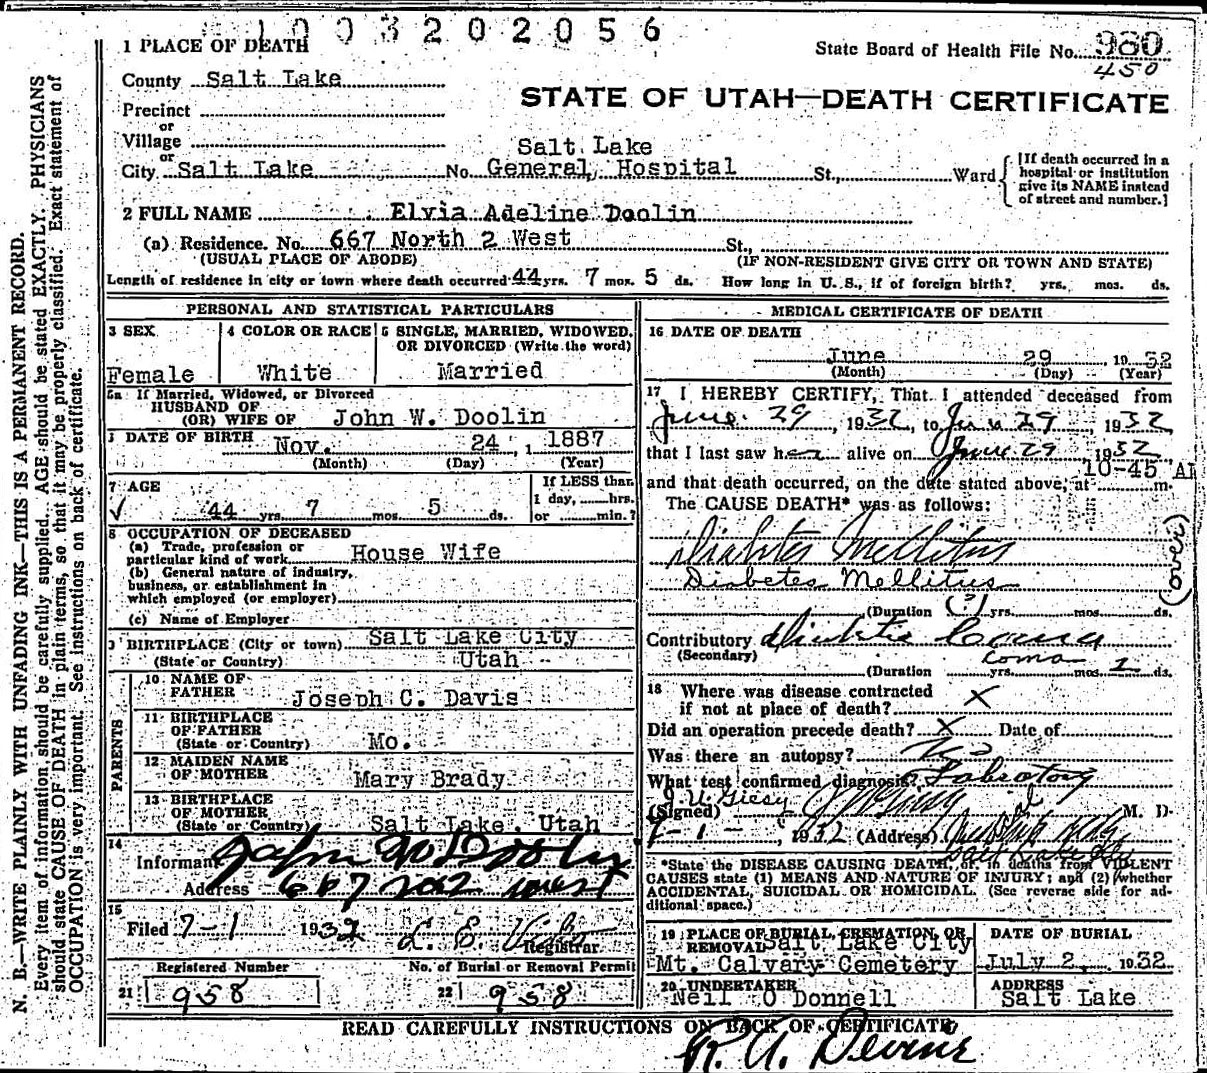 1003202056
1 PLACE OF DEATH
State Board of Health File No. 980
450
County Salt Lake
STATE OF UTAH—DEATH CERTIFICATE
Precinct
or
Village
Salt Lake
or
City Salt Lake No. General Hospital St., Ward
[If death occurred in a hospital or institution give its NAME instead of street and number.]
2 FULL NAME Elvia Adeline Doolin
(a) Residence. No. 667 North 2 West St.,
(USUAL PLACE OF ABODE) (IF NON-RESIDENT GIVE CITY OR TOWN AND STATE)
Length of residence in city or town where death occurred 44 yrs. 7 mos. 5 ds. How long in U. S., if of foreign birth? yrs. mos. ds.
PERSONAL AND STATISTICAL PARTICULARS
3 SEX
Female
4 COLOR OR RACE
White
5 SINGLE, MARRIED, WIDOWED, OR DIVORCED (Write the word)
Married
5a If Married, Widowed, or Divorced
HUSBAND OF
(OR) WIFE OF John W. Doolin
DATE OF BIRTH Nov. 24, 1887
(Month) (Day) (Year)
7 AGE
44 yrs. 7 mos. 5 ds.
If LESS than
1 day, hrs.
or min.?
8 OCCUPATION OF DECEASED
(a) Trade, profession or
particular kind of work House Wife
(b) General nature of industry,
business, or establishment in
which employed (or employer)
(c) Name of Employer
9 BIRTHPLACE (City or town) Salt Lake City
(State or Country) Utah
PARENTS
10 NAME OF
FATHER Joseph C. Davis
11 BIRTHPLACE
OF FATHER
(State or Country) Mo.
12 MAIDEN NAME
OF MOTHER Mary Brady
13 BIRTHPLACE
OF MOTHER
(State or Country) Salt Lake, Utah
14
Informant John W Doolin
Address 667 No 2 west
15
Filed 7-1 1932
Registrar
Registered Number
21 958
No. of Burial or Removal Permit
22 958
MEDICAL CERTIFICATE OF DEATH
16 DATE OF DEATH
June 29 1932
(Month) (Day) (Year)
17 I HEREBY CERTIFY, That I attended deceased from
June 29, 1932, to June 29, 1932
that I last saw her alive on June 29 1932
10-45 A
and that death occurred, on the date stated above, at m.
The CAUSE DEATH* was as follows:
Diabetes Mellitus
Diabetes Mellitus
(over)
(Duration (?) yrs. mos. ds.
Contributory Diabetic Coma
(Secondary) Coma
(Duration yrs. mos. 1 ds.
18 Where was disease contracted
if not at place of death? X
Did an operation precede death? X Date of
Was there an autopsy? No
What test confirmed diagnosis? Labratory
(Signed) J U Giesy M. D.
7-1-, 1932 (Address)
*State the DISEASE CAUSING DEATH, or in deaths from VIOLENT
CAUSES state (1) MEANS AND NATURE OF INJURY; and (2) whether
ACCIDENTAL, SUICIDAL OR HOMICIDAL. (See reverse side for ad-
ditional space.)
19 PLACE OF BURIAL, CREMATION, OR
REMOVAL Salt Lake City
Mt. Calvary Cemetery
DATE OF BURIAL
July 2, 1932
20 UNDERTAKER
Neil O Donnell
ADDRESS
Salt Lake
READ CAREFULLY INSTRUCTIONS ON BACK OF CERTIFICATE
R. A. Devine
N. B.—WRITE PLAINLY WITH UNFADING INK—THIS IS A PERMANENT RECORD.
Every item of information should be carefully supplied. AGE should be stated EXACTLY. PHYSICIANS
should state CAUSE OF DEATH in plain terms, so that it may be properly classified. Exact statement of
OCCUPATION is very important. See instructions on back of certificate.